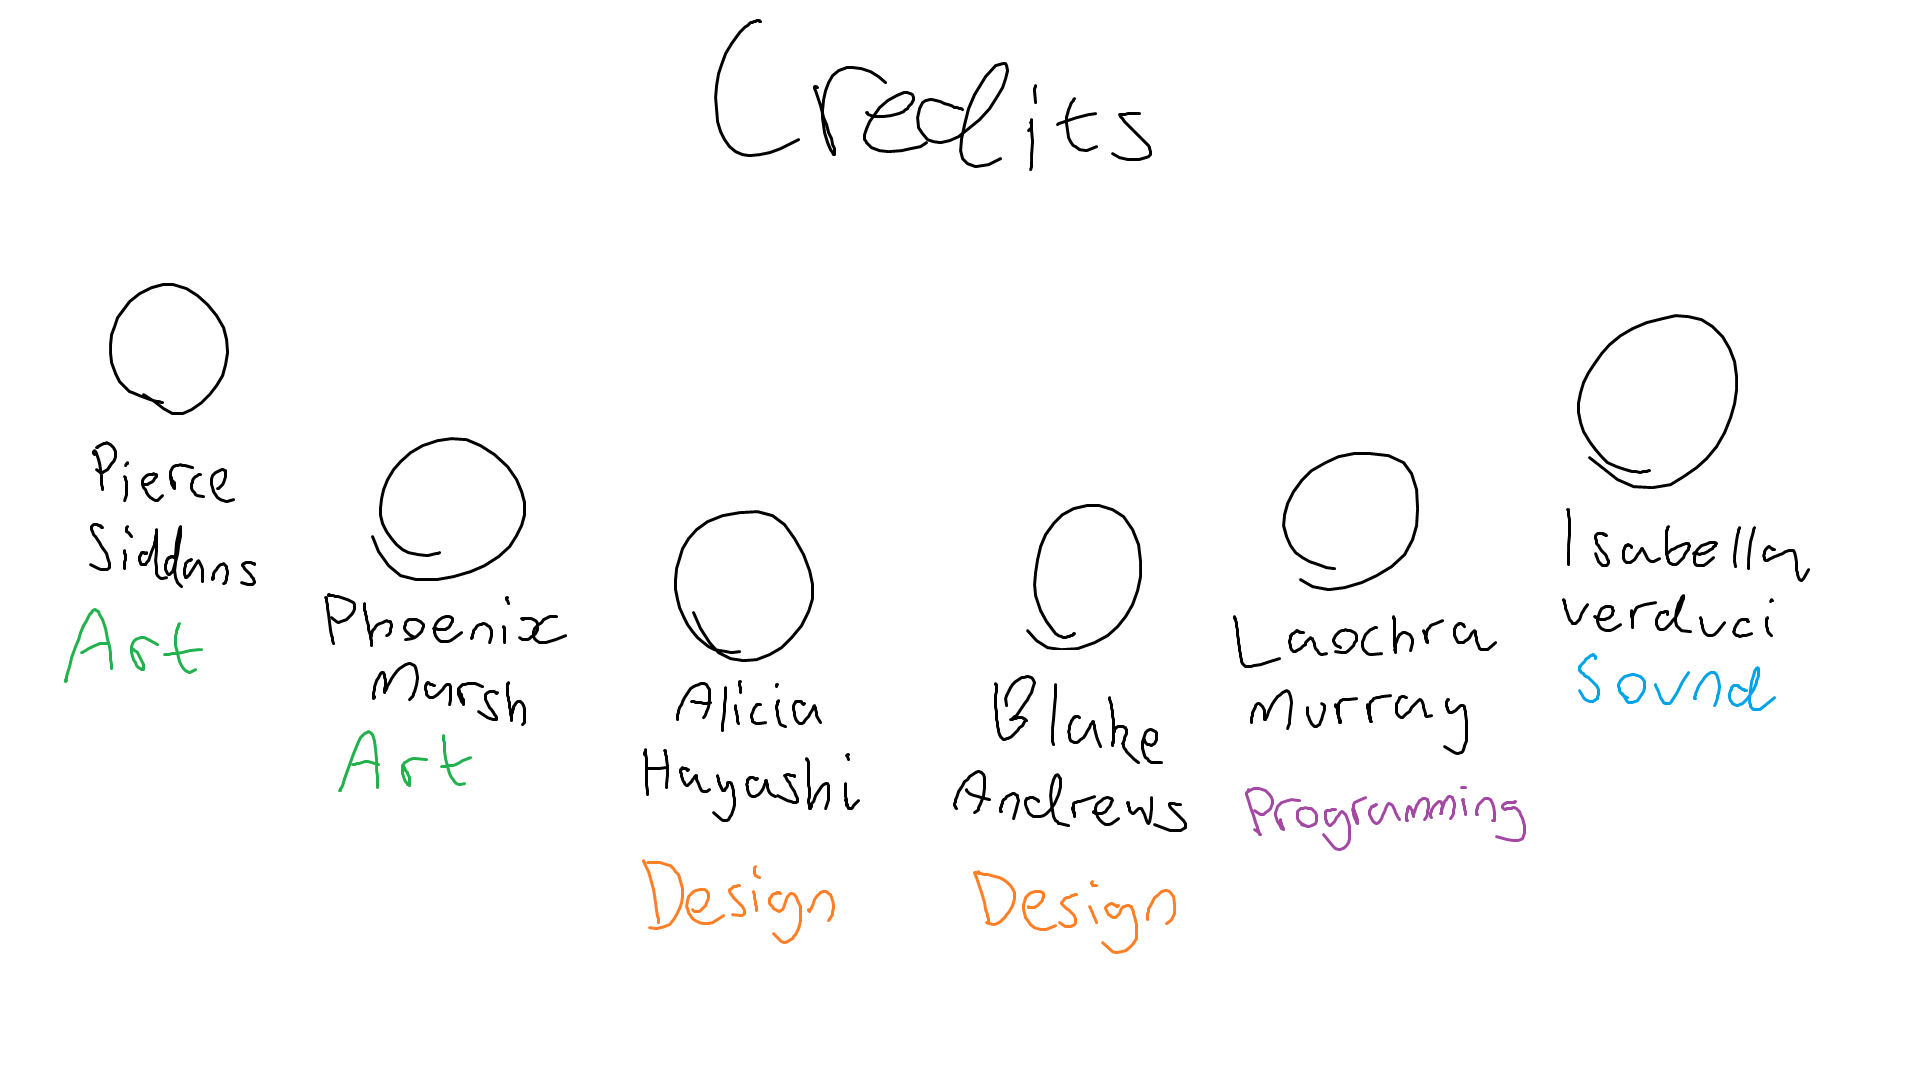 Credits
Pierce
Siddans
Art
Phoenix
Marsh
Art
Alicia
Hayashi
Design
Blake
Andrews
Design
Laochra
Murray
Programming
Isabella
Verduci
Sound